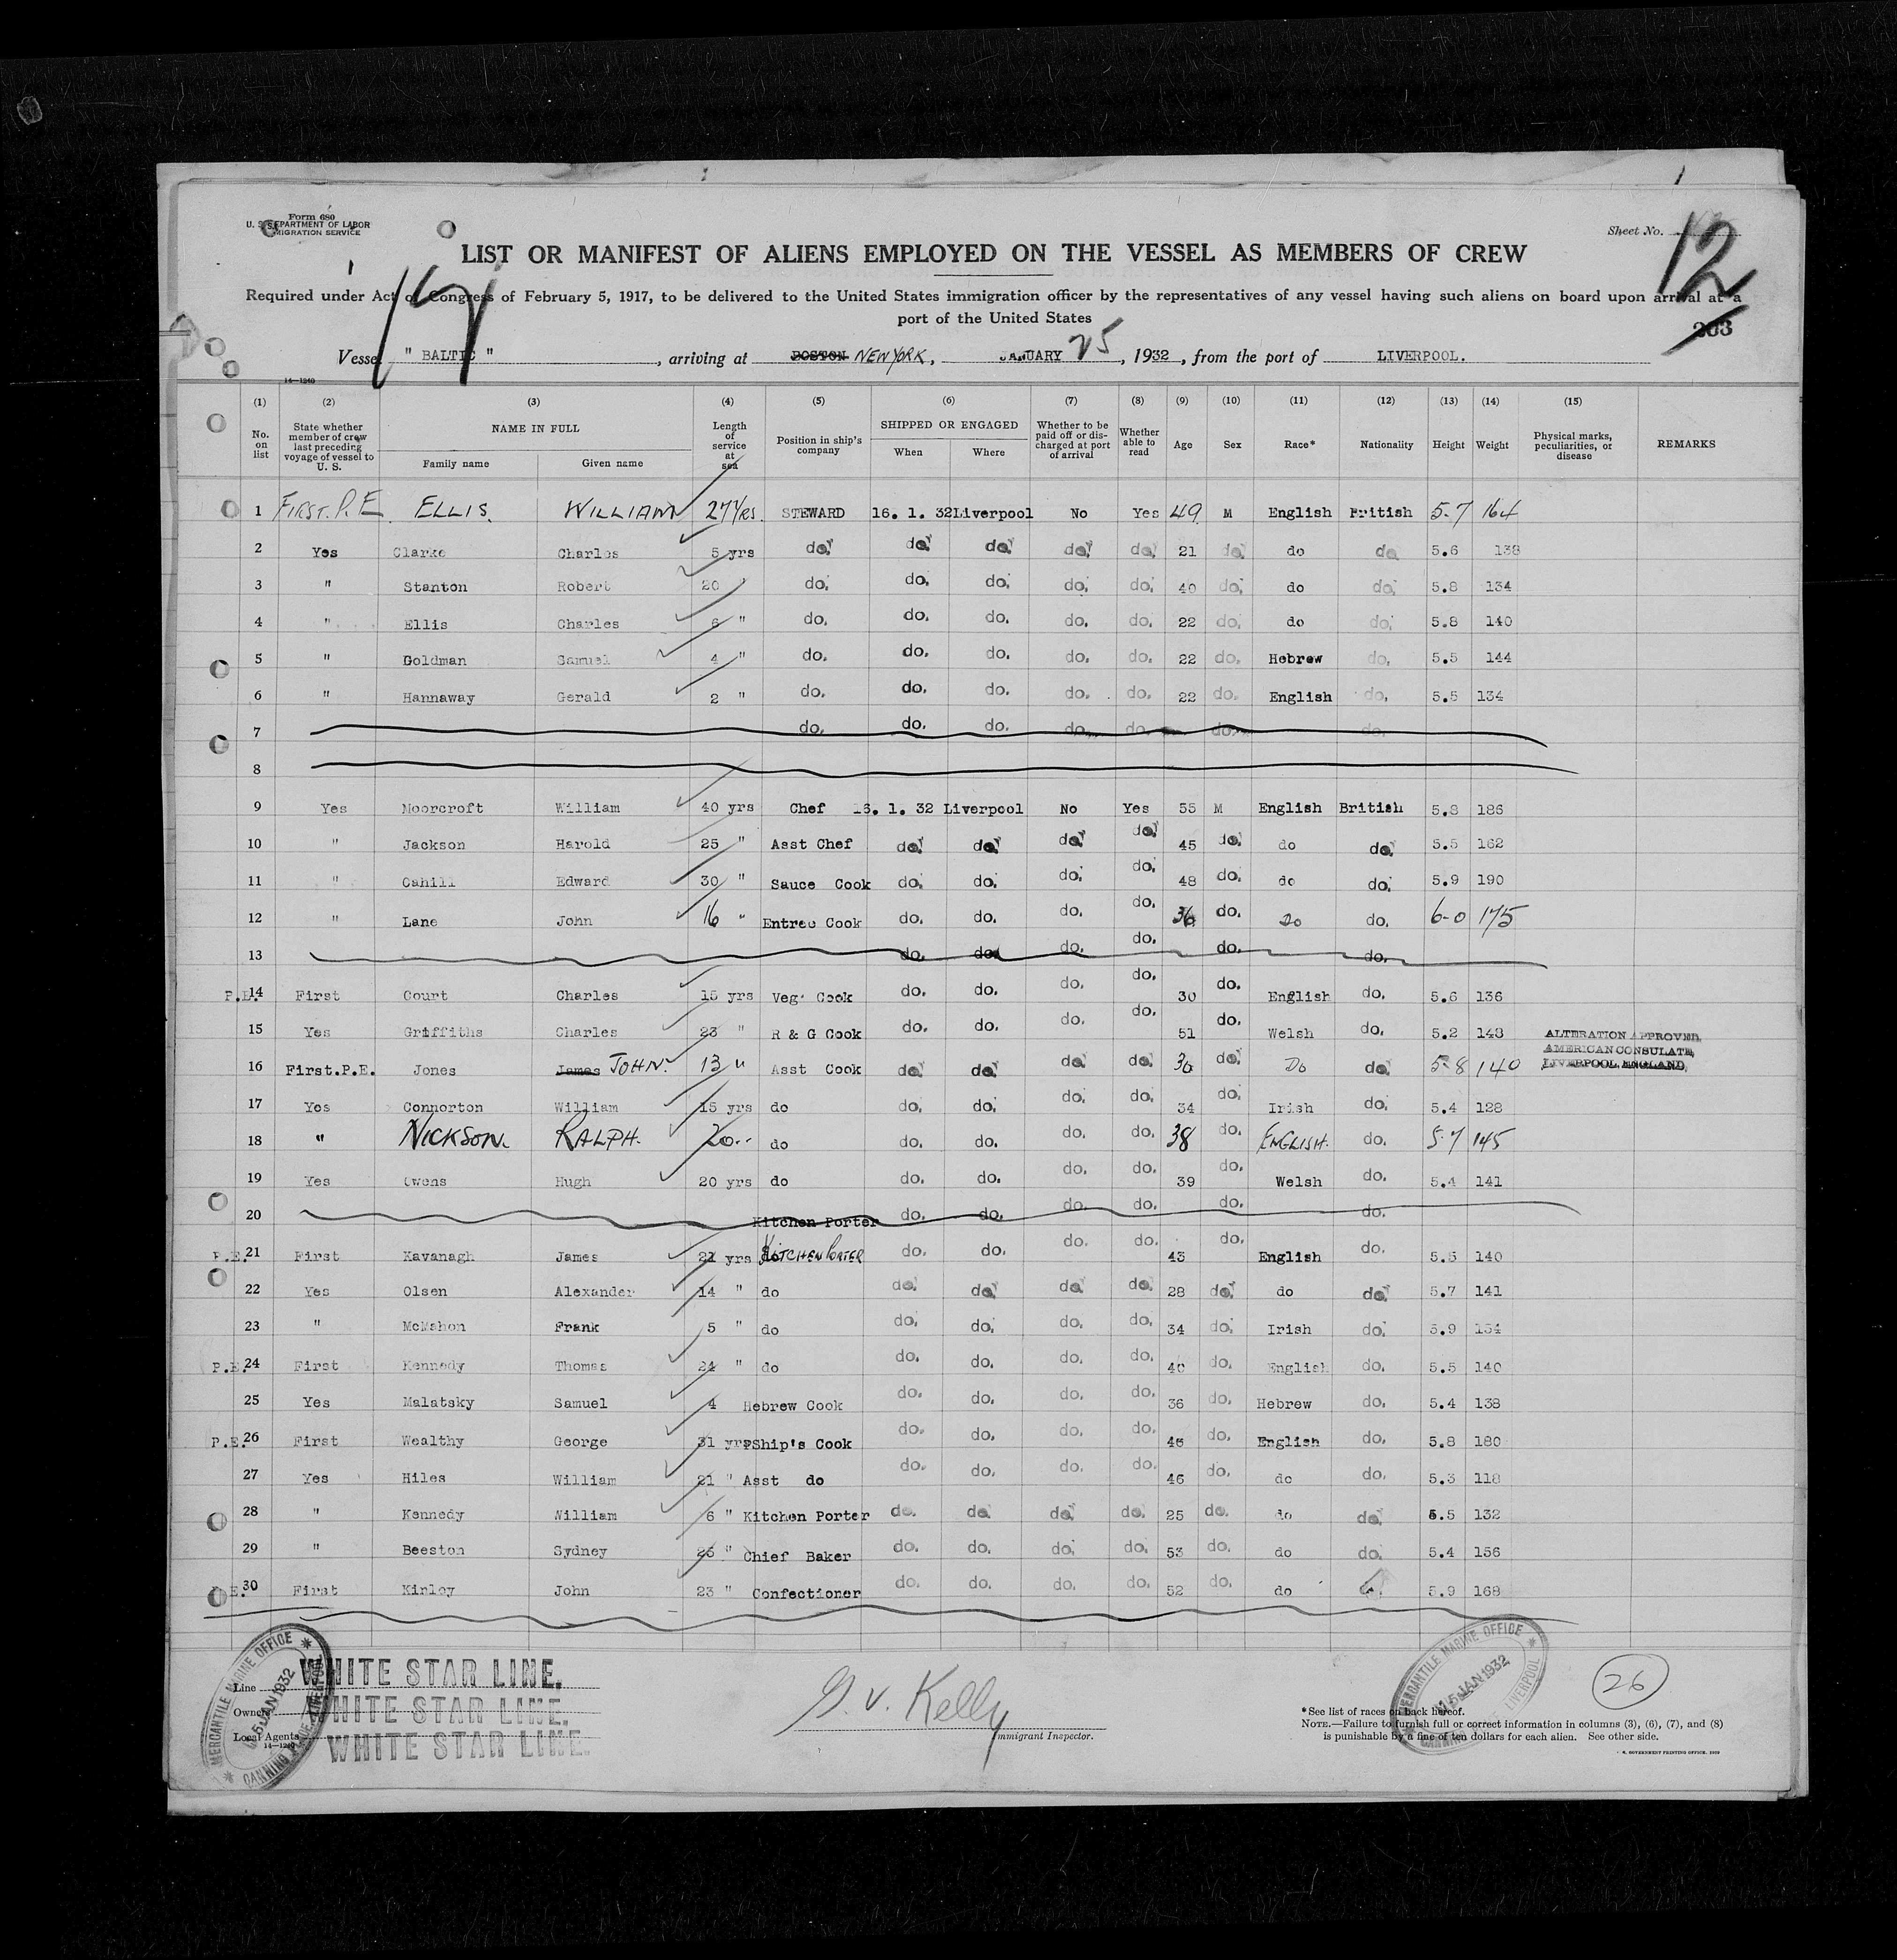 Form 680
U. S. DEPARTMENT OF LABOR
IMMIGRATION SERVICE
Sheet No. 12
LIST OR MANIFEST OF ALIENS EMPLOYED ON THE VESSEL AS MEMBERS OF CREW
Required under Act of Congress of February 5, 1917, to be delivered to the United States immigration officer by the representatives of any vessel having such aliens on board upon arrival at a
port of the United States
Vessel " BALTIC ", arriving at BOSTON NEW YORK, JANUARY 25, 1932, from the port of LIVERPOOL.
14—1240
(1) (2) (3) (4) (5) (6) (7) (8) (9) (10) (11) (12) (13) (14) (15)
No. on list
State whether member of crew last preceding voyage of vessel to U. S.
NAME IN FULL
Family name Given name
Length of service at sea
Position in ship's company
SHIPPED OR ENGAGED
When Where
Whether to be paid off or discharged at port of arrival
Whether able to read
Age Sex Race* Nationality Height Weight
Physical marks, peculiarities, or disease
REMARKS
1 FIRST. P.E. ELLIS. WILLIAM 27 YRS. STEWARD 16. 1. 32 Liverpool No Yes 49 M English British 5-7 164
2 Yes Clarke Charles 5 yrs do. do. do. do. do. 21 do. do do 5.6 138
3 " Stanton Robert 20 " do. do. do. do. do. 40 do. do do. 5.8 134
4 " Ellis Charles 6 " do. do. do. do. do. 22 do. do do. 5.8 140
5 " Goldman Samuel 4 " do. do. do. do. do. 22 do. Hebrew do. 5.5 144
6 " Hannaway Gerald 2 " do. do. do. do. do. 22 do. English do. 5.5 134
7 do. do. do. do. do. do. do.
8
9 Yes Moorcroft William 40 yrs Chef 16. 1. 32 Liverpool No Yes 55 M English British 5.8 186
10 " Jackson Harold 25 " Asst Chef do. do. do. do. 45 do. do do. 5.5 162
11 " Cahill Edward 30 " Sauce Cook do. do. do. do. 48 do. do do. 5.9 190
12 " Lane John 16 " Entree Cook do. do. do. do. 36 do. Do do. 6-0 175
13 do. do. do. do. do. do.
14 First Court Charles 15 yrs Veg. Cook do. do. do. do. 30 do. English do. 5.6 136
15 Yes Griffiths Charles 23 " R & G Cook do. do. do. do. 51 do. Welsh do. 5.2 143
ALTERATION APPROVED,
AMERICAN CONSULATE,
LIVERPOOL, ENGLAND
16 First.P.E. Jones James JOHN. 13 " Asst Cook do. do. do. do. 30 do. Do do. 5-8 140
17 Yes Connorton William 15 yrs do do. do. do. do. 34 do. Irish do. 5.4 128
18 " NICKSON. RALPH. 20 " do do. do. do. do. 38 do. ENGLISH. do. 5-7 145
19 Yes Owens Hugh 20 yrs do do. do. do. do. 39 do. Welsh do. 5.4 141
20 Kitchen Porter do. do. do. do. do. do.
P.E. 21 First Kavanagh James 21 yrs KITCHEN PORTER do. do. do. do. 43 do. English do. 5.5 140
22 Yes Olsen Alexander 14 " do do. do. do. do. 28 do. do do. 5.7 141
23 " McMahon Frank 5 " do do. do. do. do. 34 do. Irish do. 5.9 134
P.E. 24 First Kennedy Thomas 24 " do do. do. do. do. 40 do. English do. 5.5 140
25 Yes Malatsky Samuel 4 Hebrew Cook do. do. do. do. 36 do. Hebrew do. 5.4 138
P.E. 26 First Wealthy George 31 yrs Ship's Cook do. do. do. do. 46 do. English do. 5.8 180
27 Yes Hiles William 21 " Asst do do. do. do. do. 46 do. do do. 5.3 118
28 " Kennedy William 6 " Kitchen Porter do. do. do. do. 25 do. do do. 5.5 132
29 " Beeston Sydney Chief Baker do. do. do. do. 53 do. do do. 5.4 156
30 First Kinley John 23 " Confectioner do. do. do. do. 52 do. do 5.9 168
MERCANTILE MARINE OFFICE
JAN 1932
CANNING PLACE LIVERPOOL
Line WHITE STAR LINE.
Owners WHITE STAR LINE.
Local Agents WHITE STAR LINE.
14—1240
G. V. Kelly
Immigrant Inspector.
MERCANTILE MARINE OFFICE
15 JAN 1932
CANNING LIVERPOOL
26
*See list of races on back hereof.
NOTE.—Failure to furnish full or correct information in columns (3), (6), (7), and (8)
is punishable by a fine of ten dollars for each alien. See other side.